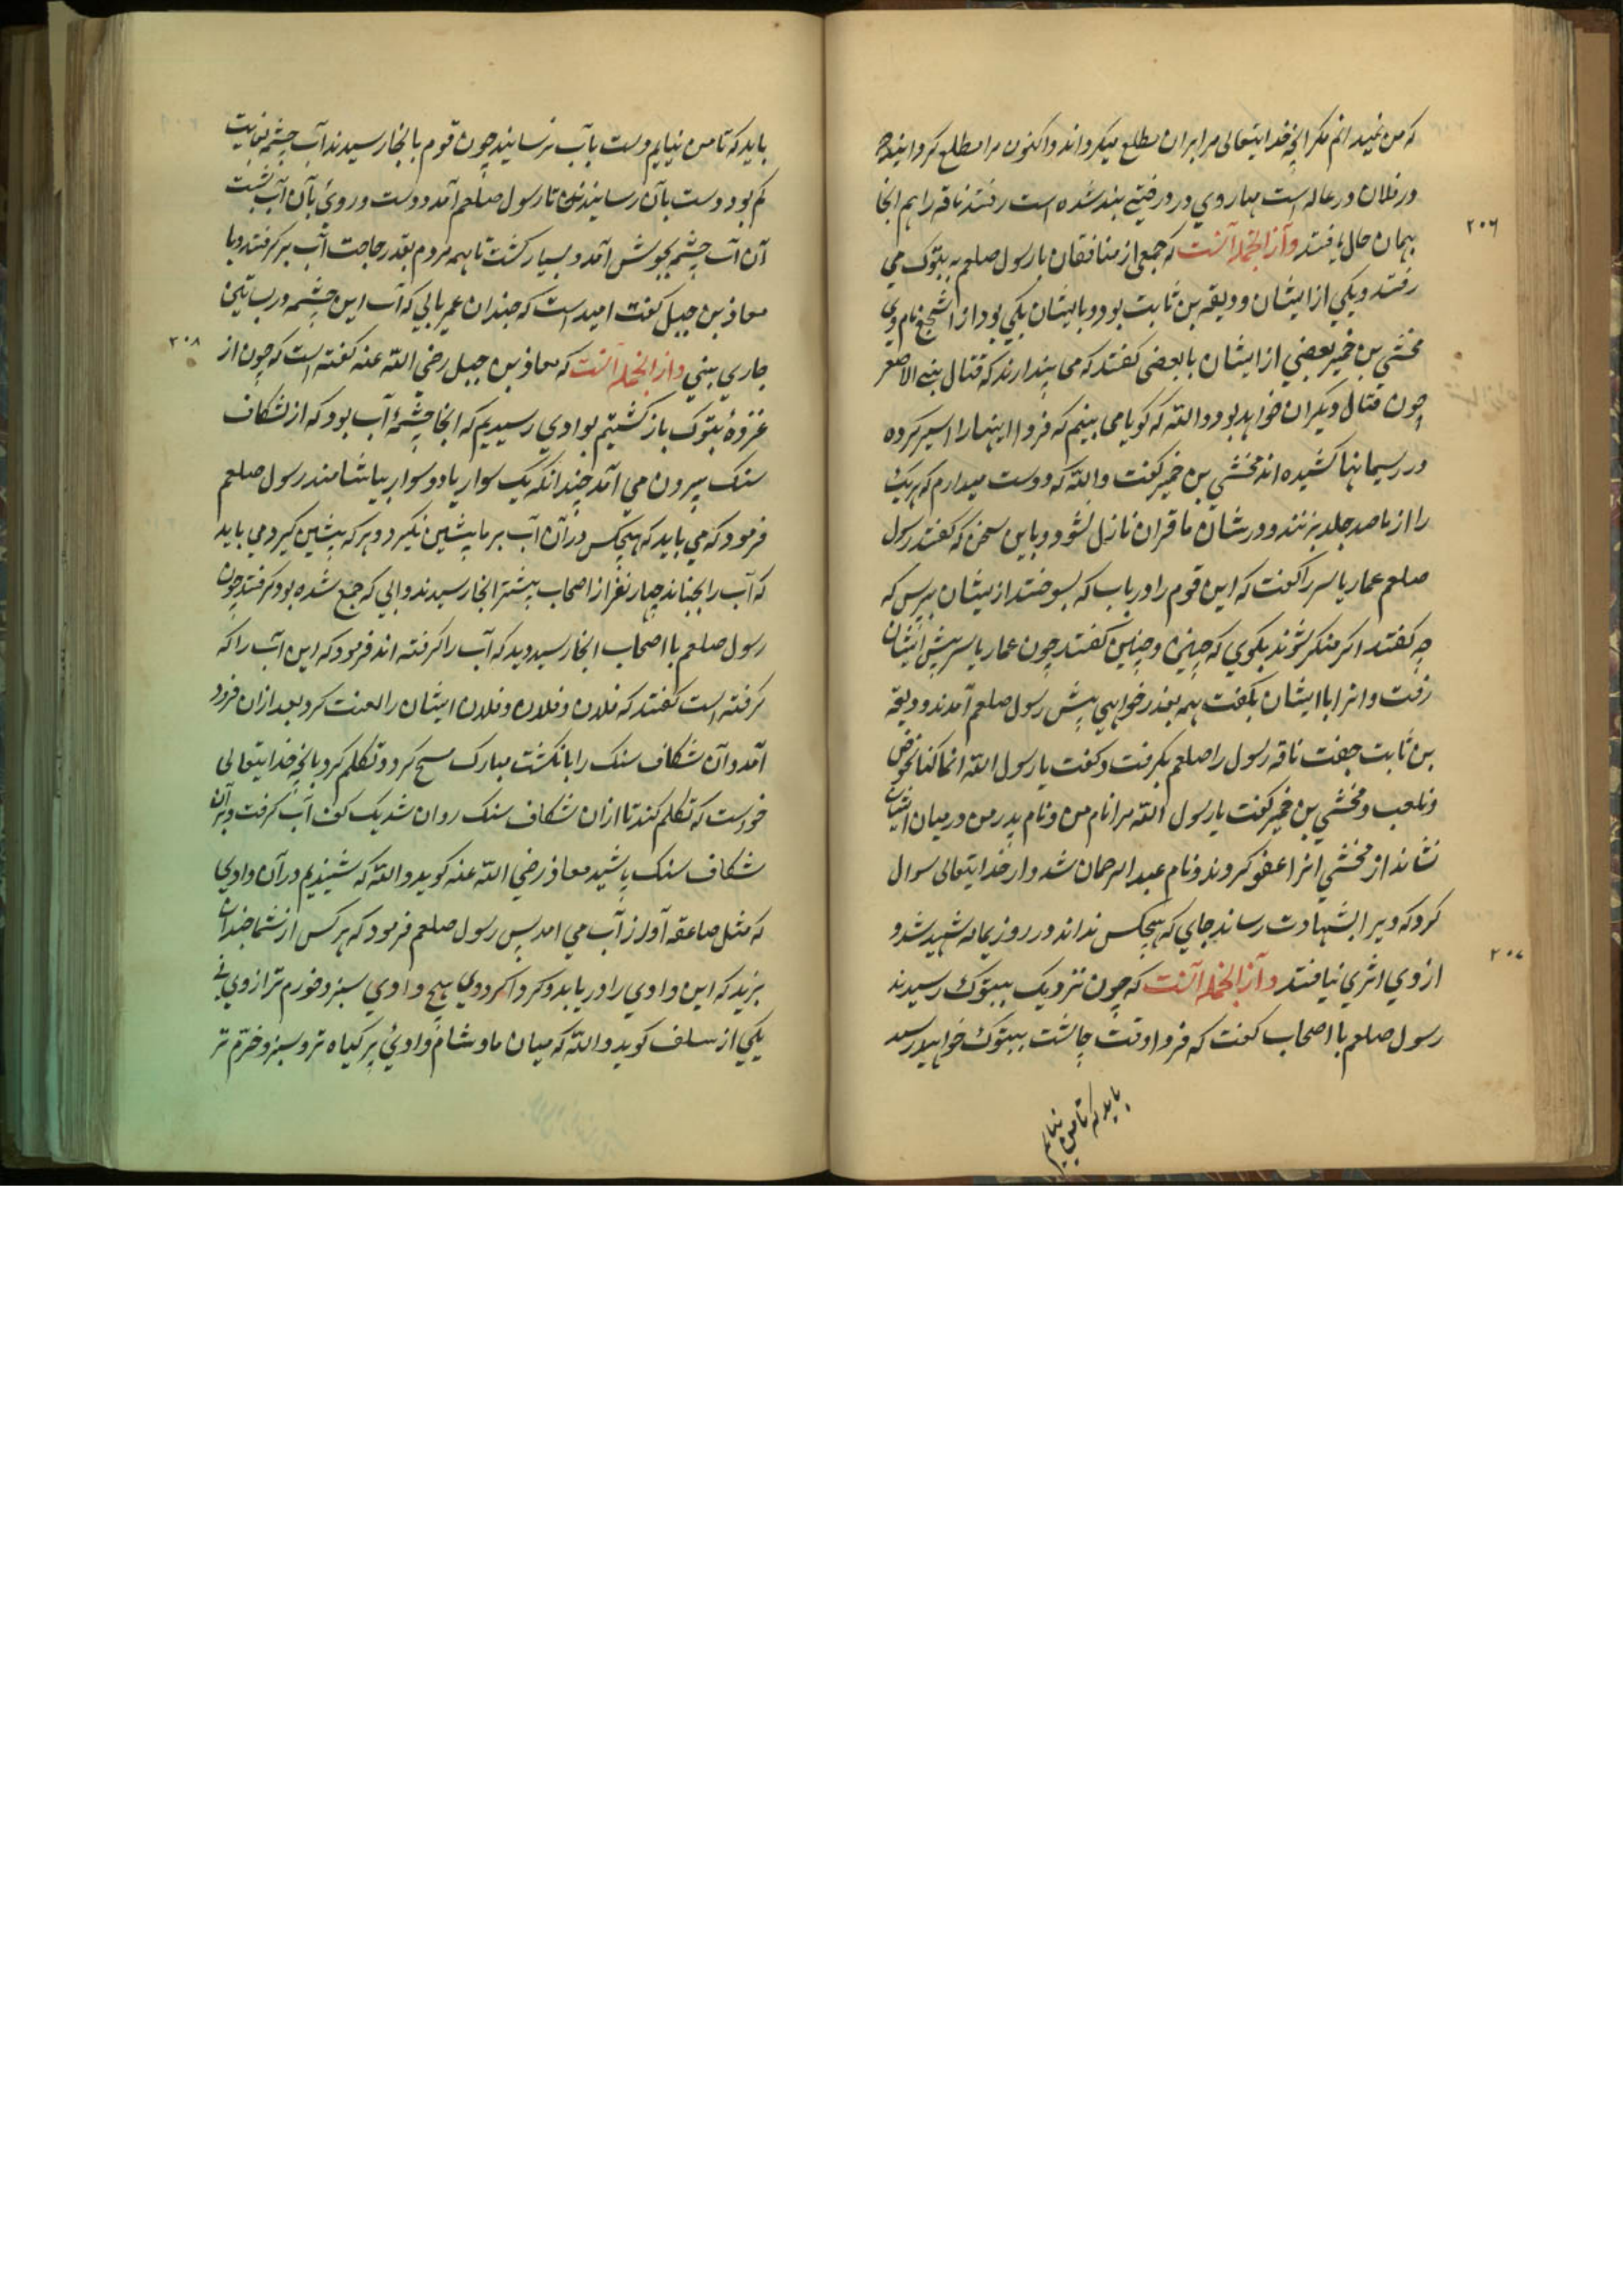 که من نمیدانم مکر آنچه خدایتعالی مرا بران مطلع میکرداند واکنون مرا مطلع کردانید که
در فلان درعاله است مهار وی در درختی بند شده است رفتند ناقه را هم انجا
بهمان حال یافتند وآز انجمله آنست که جمعی از منافقان با رسول صلعم به تبوک می
۲۰۶
رفتند ویکی از ایشان ودیعه بن ثابت بود وبا ایشان یکی بود از اشجع نام وی
مخشی بن خمیر بعضی از ایشان با بعضی کفتند که می پندارند که قتال بنی الاصفر
چون قتال دیکران خواهد بود والله که کویا می بینم که فردا اینها را اسیر کرده
در ریسمانها کشیده اند مخشی بن خمیر کفت والله که دوست میدارم که هر یک
را از ما صد جلد بزنند ودر شان ما قران نازل نشود وباین سخن که کفتند رسول
صلعم عمار یاسر را کفت که این قوم را دریاب که بسوختند از یشان بپرس که
چه کفتند اکر منکر شوند بکوی که چنین وچنین کفتند چون عمار یاسر پیش ایشان
رفت وانرا با ایشان بکفت همه بعذر خواهی پیش رسول صلعم آمدند ودیعه
بن ثابت جفت ناقه رسول را صلعم بکرفت وکفت یا رسول الله انما کنا نخوض
ونلعب ومخشی بن خمیر کفت یا رسول الله مرا نام من ونام پدر من در میان ایشان
نشاند از مخشی انرا عفو کروند ونام عبد الرحمان شد واز خدایتعالی سوال
کرد که ویرا بشهادت رساند جای که هیچکس نداند در روز یمامه شهید شد و
از وی اثری نیافتند وآز انجمله آنست که چون نزدیک بتبوک رسیدند
۲۰۷
رسول صلعم با اصحاب کفت که فردا وقت چاشت بتبوک خواهید رسید
باید که تا من نیایم
باید که تا من نیایم دست بآب نرسانید چون قوم بانجا رسیدند آب چشمه بغایت
کم بود دست بآن نرسانیدند تا رسول صلعم آمد ودست وروی بآن آب بشست
آن آب چشمه بجوشش آمد وبسیار کشت تا همه مردم بقدر حاجت آب بر کرفتند وبا
معاذ بن جبل کفت امید است که چندان عمر یابی که آب این چشمه در بساتین
جاری بینی وآز انجمله آنست که معاذ بن جبل رضی الله عنه کفته است که چون از
۲۰۸
غزوۀ تبوک باز کشتیم بوادی رسیدیم که انجا چشمۀ آب بود که از شکاف
سنک بیرون می آمد چندانکه یک سوار یا دو سوار بیاشامند رسول صلعم
فرمود که می باید که هیچکس در آن آب بر ما پیشین نکیرد وهر که پیشین کیرد می باید
که آب را نجنباند چهار نفر از اصحاب پیشتر انجا رسیدند وابی که جمع شده بود کرفتند چون
رسول صلعم با اصحاب انجا رسید دید که آب را کرفته اند فرمود که این آب را که
کرفته است کفتند که فلان وفلان وفلان ایشان را لعنت کرد بعد ازان فرود
آمد وآن شکاف سنک را بانکشت مبارک مسح کرد وتکلم کرد بانچه خدایتعالی
خواست که تکلم کند تا ازان شکاف سنک روان شد یک کف آب کرفت وبرآن
شکاف سنک پاشید معاذ رضی الله عنه کوید والله که شنیدیم در آن وادی
که مثل صاعقه آواز آب می امد پس رسول صلعم فرمود که هر کس از شما چندان
بزید که این وادی را دریابد وکرداکرد وی هیچ وادی سبز وخورم تر از وی نی
یکی از سلف کوید والله که میان ما وشام وادئ پر کیاه تر وسبز وخرّم تر